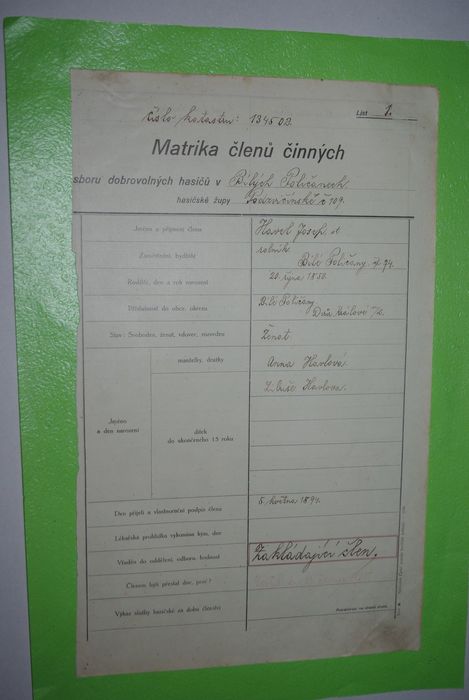 číslo
1345
List 1.
Matrika členů činných
sboru dobrovolných hasičů v Bílých Poličanech
hasičské župy Podzvičinské č 109.
Jméno a příjmení člena Havel Josef, st
Zaměstnání, bydliště rolník. Bílé Poličany, čp 74.
Rodiště, den a rok narození 20. října 1850.
Příslušnost do obce, okresu Bílé Poličany
Dvůr Králové n/L.
Stav: Svoboden, ženat, vdovec, rozveden Ženat
manželky, dítky Anna Havlová
Havlova.
Jméno
a den narození
dítek
do ukončeného 15 roku
Den přijetí a vlastnoruční podpis člena 5. května 1894.
Lékařská prohlídka vykonána kým, dne
Vřaděn do oddělení, odboru, hodnost Zakládající člen.
Členem býti přestal dne, proč?
Výkaz služby hasičské za dobu členství
Pokračování na straně druhé.